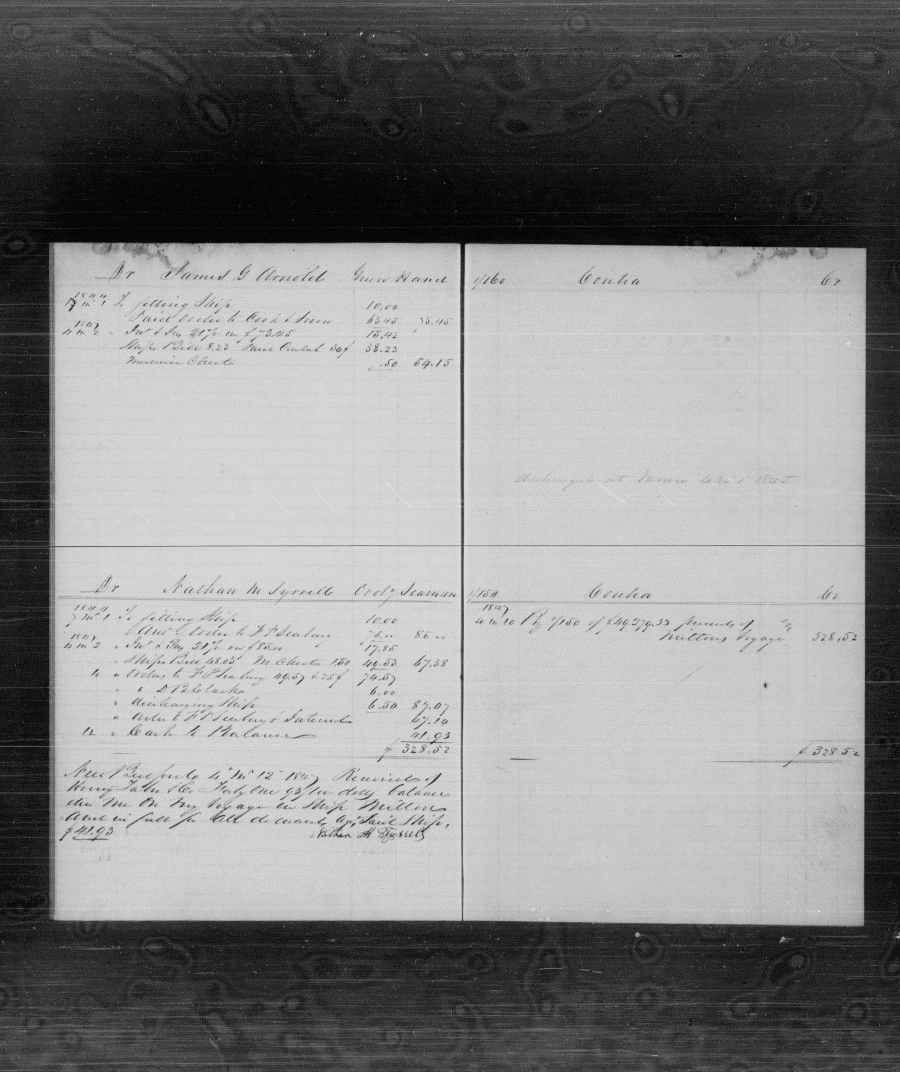 Dr James G Arnold Green Hand
1844
7 m 1 To fitting Ship 10.00
Paid order to Cook & Snow 63.45 73.45
1847
4 m 2 " Int & Ins 21% on $73.45 15.42
Ships Bill 8.23 Paid 30$ 38.23
Medicine Chest .50 54.15
1/160 Contra Cr
discharged at 1845
Dr Nathan M Tyrrell Ordy Seaman
1844
7 m 1 To fitting Ship 10.00
" Order to F P Seabury 75 " 85 "
1847
4 m 2 " Int & Ins 21% on $85.00 17.85
" Ships Bill 48.03 M Chest 1.50 49.53 67.38
10 " Order to F P Seabury 49.57 & 25$ 74.57
" " D R Clark 6.00
" discharging Ship 6.50 87.07
" order to F P Seabury & Interest 47.14
12 " Cash to Balance 41.93
$ 328.52
New Bedford 4 m 12 1847 Received of
Henry Taber & Co Forty One 93/100 dolls balance
due me on my voyage in Ship Milton
and in full for all demands agt said Ship.
$41.93 Nathan M Tyrrell
1/150 Contra Cr
1847
4 m 10 By 1/150 of $49,279.33 proceeds of
Miltons Voyage 328.52
$ 328.52